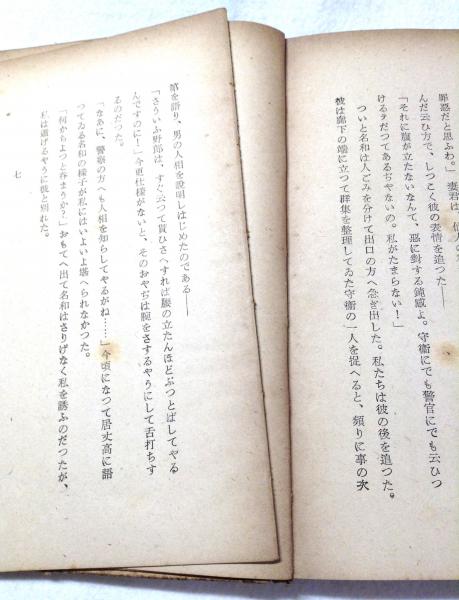 罪惑だと思ふわ。」妻君は、
んだ云ひ方で、しつこく彼の表情を追つた――
「それに腹が立たないなんて、惡に對する鈍感よ。守衞にでも警官にでも云ひつ
けるテだつてあるぢやないの。私がたまらない！」
ついと名和は人ごみを分けて出口の方へ急ぎ出した。私たちは彼の後を追つた。
彼は廊下の端に立つて群集を整理してゐた守衞の一人を捉へると、頻りに事の次
第を語り、男の人相を説明しはじめたのである――
「さういふ野郎は、すぐ云つて貰ひへすれば腰の立たんほどぶつとばしてやる
んですのに！」今更仕樣がないと、そのおやぢは腕をさするやうにして舌打ちす
るのだつた。
「なあに、警察の方へも人相を知らしてやるがね……」今頃になつて居丈高に語
つてゐる名和の樣子が私にはいよいよ堪へられなかつた。
「何かちよつと呑まうか？」おもてへ出て名和はさりげなく私を誘ふのだつたが、
私は逃げるやうに彼と別れた。
七